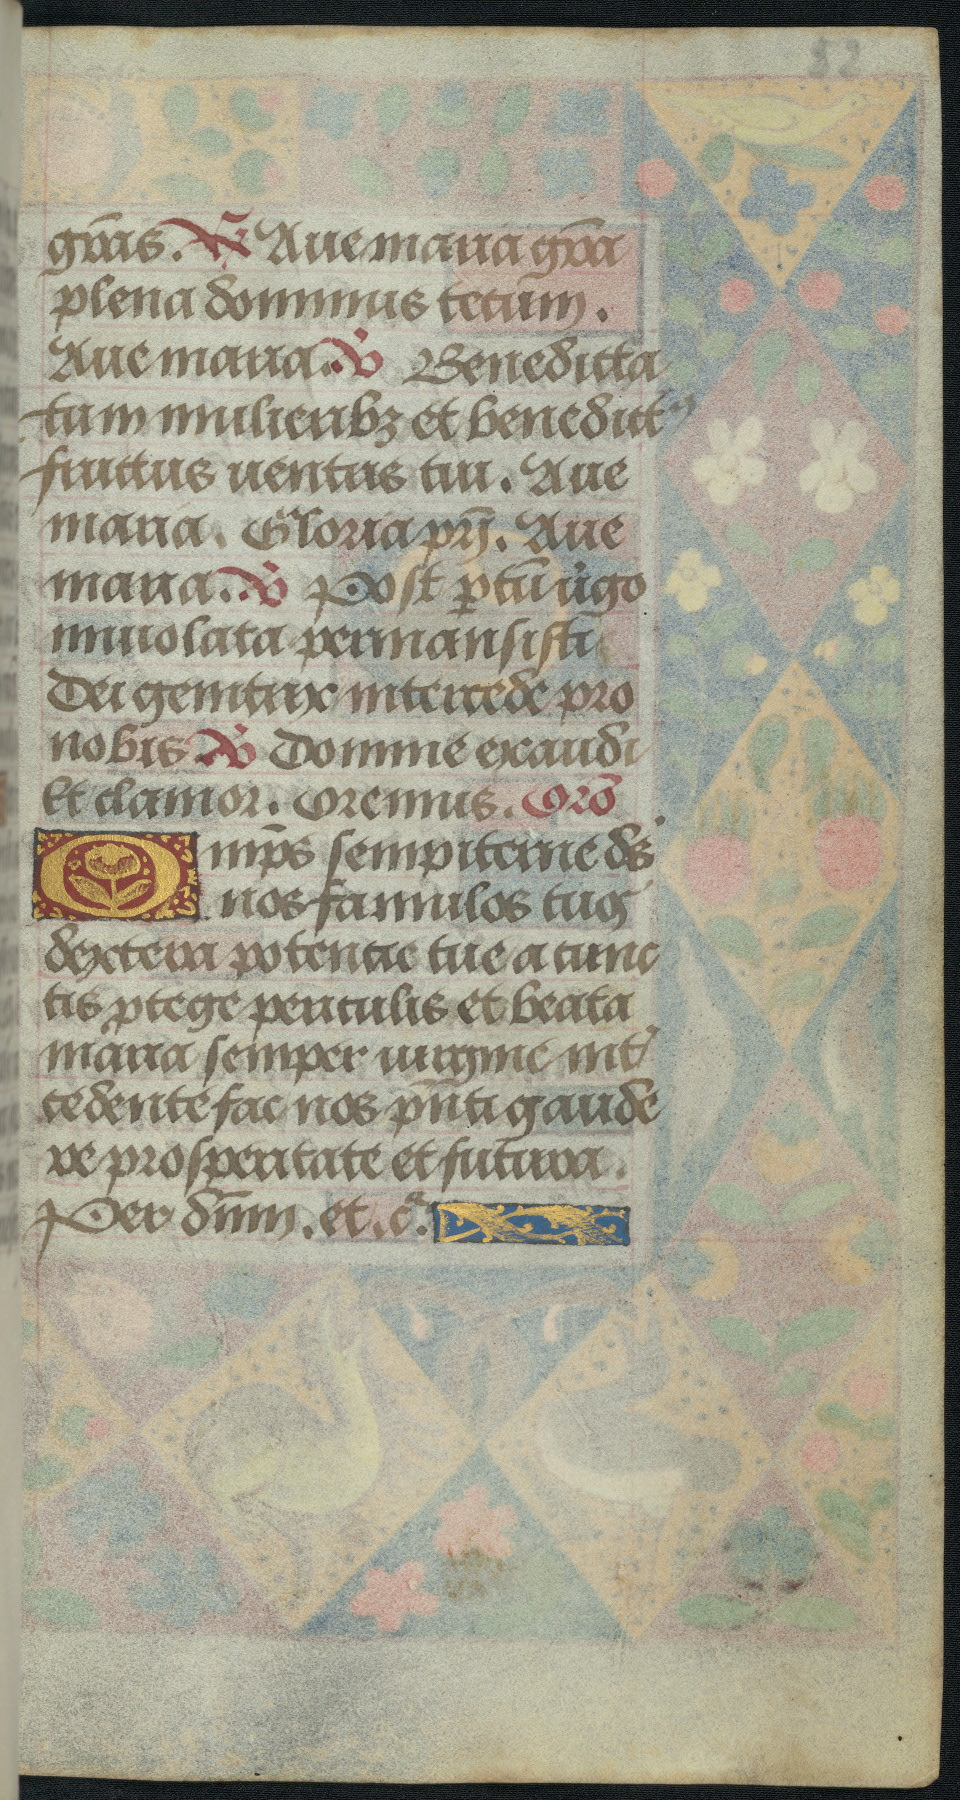 52
gr̄as. R̃ Aue maria gr̄a
plena dominus tecum.
Aue maria. V̉ Benedicta
tu in mulieribꝫ et benedict⁹
fructus uentris tui. Aue
maria. Gloria pr̄j. Aue
maria. V̉ Post ꝑtū ūgo
inuiolata permansisti
Dei genitrix intercede pro
nobis V̉ Domine exaudi
Et clamor. Oremus. Orō
Omp̄s sempiterne ds̄
nos famulos tuos
dextera potentie tue a cunc
tis ꝓtege periculis et beata
maria semper uirgine int͛
cedente fac nos p̄nti gaude
re prosperitate et futura.
Per dn̄m. et. cͣ.